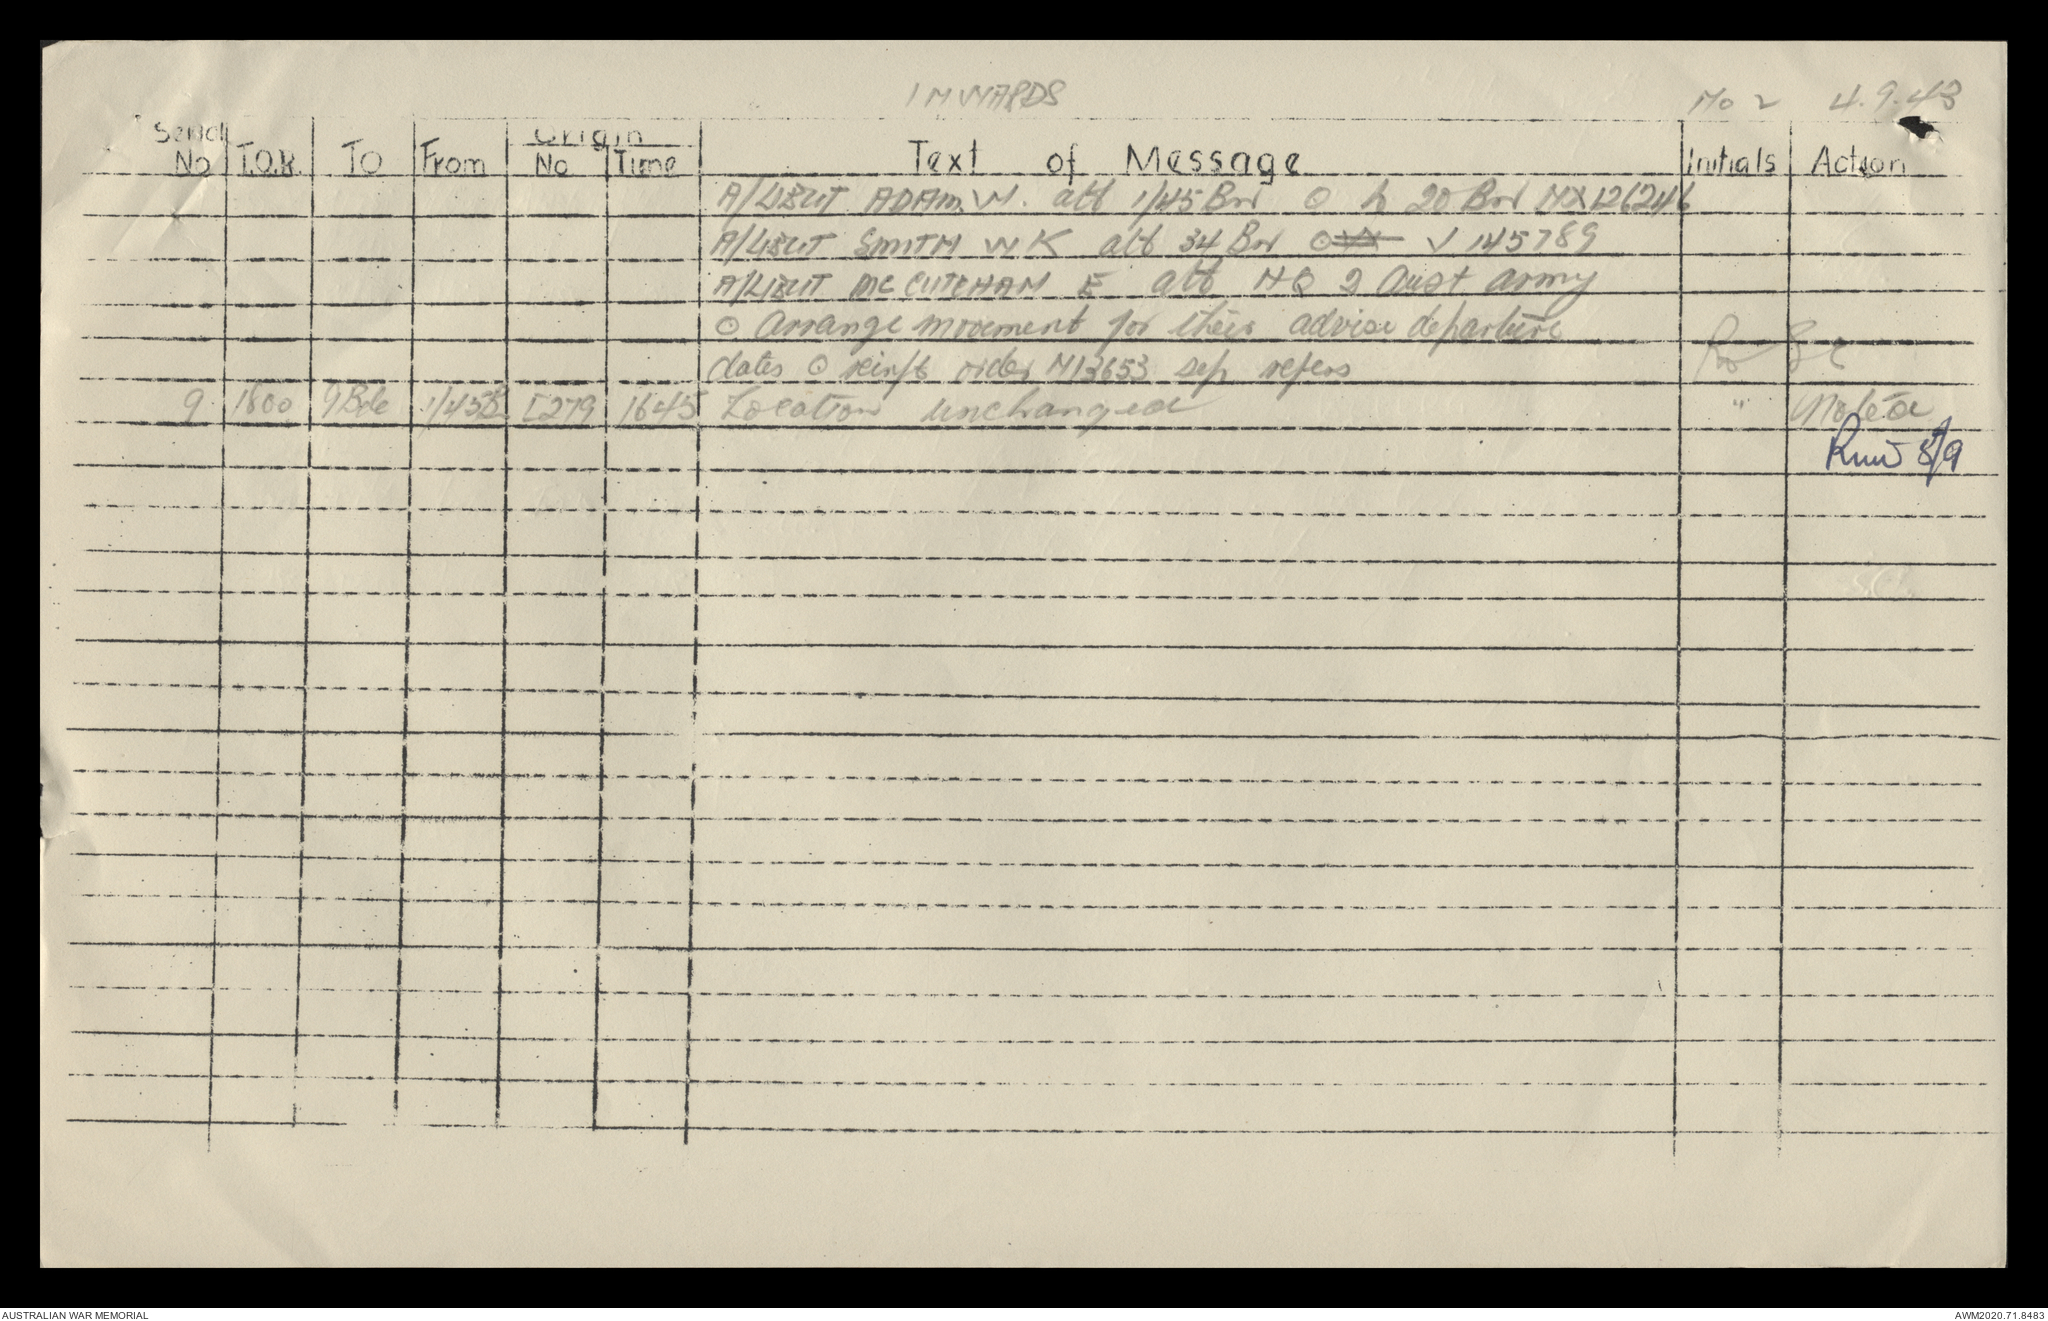 INWARDS No 2 4.9.43
Serial No T.O.R. TO From Origin No Time Text of Message Initials Action
A/LIEUT ADAM. W. att 1/45 Bn ⊙ to 20 Bn NX126246
A/LIEUT SMITH W K att 34 Bn ⊙ V 145789
A/LIEUT MC CUTCHAN E att HQ 2 Aust army
⊙ Arrange movement for their advise departure
dates ⊙ reinft order N13653 sep refers
9 1800 9 Bde 1/45 B 279 1645 Location unchanged " Noted
5/9
AUSTRALIAN WAR MEMORIAL AWM2020.71.8483